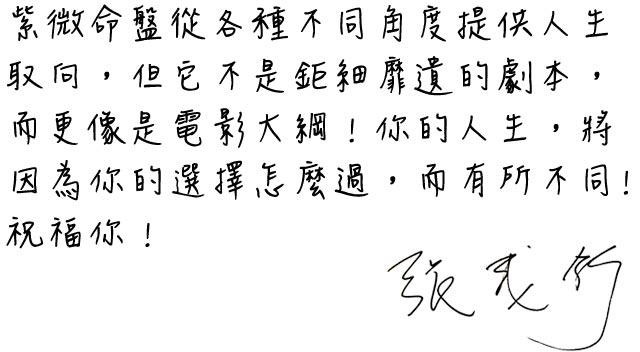 紫微命盤從各種不同角度提供人生
取向，但它不是鉅細靡遺的劇本，
而更像是電影大綱！你的人生，將
因為你的選擇怎麼過，而有所不同！
祝福你！